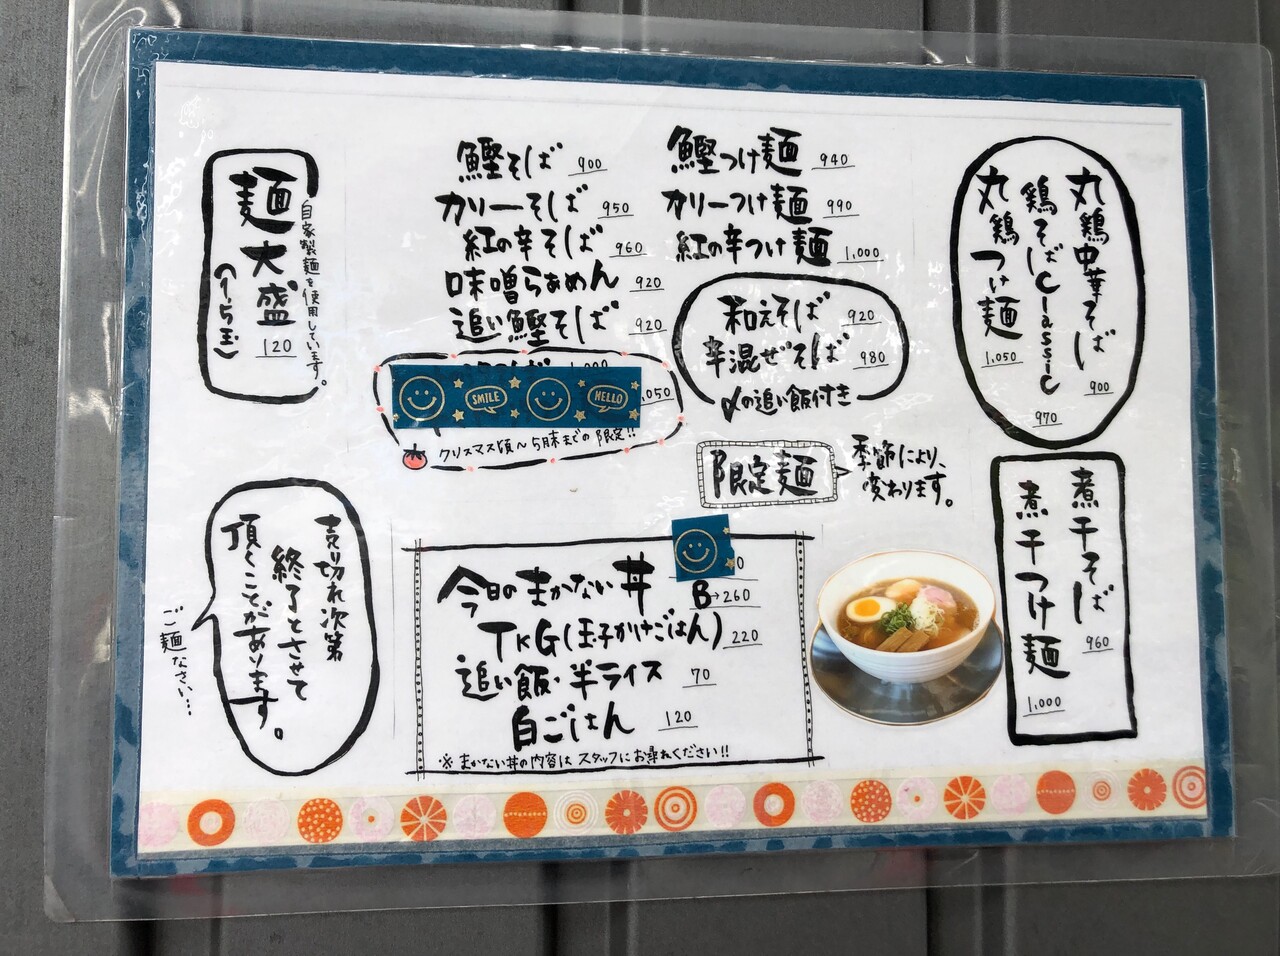 丸鶏中華そば 900
鶏そばClassic 970
丸鶏つけ麺 1,050
煮干そば 960
煮干つけ麺 1,000
鰹つけ麺 940
カリーつけ麺 990
紅の辛つけ麺 1,000
和えそば 920
辛混ぜそば 980
〆の追い飯付き
限定麺
季節により、
変わります。
鰹そば 900
カリーそば 950
紅の辛そば 960
味噌らぁめん 920
追い鰹そば 920
SMILE
HELLO
,050
クリスマス頃〜5月末までの限定!!
今日のまかない丼 0
B→260
TKG(玉子かけごはん) 220
追い飯・半ライス 70
白ごはん 120
※まかない丼の内容はスタッフにお尋ねください!!
自家製麺を使用しています。
麺大盛
120
売り切れ次第
終了とさせて
頂くことがあります。
ご麺なさい…